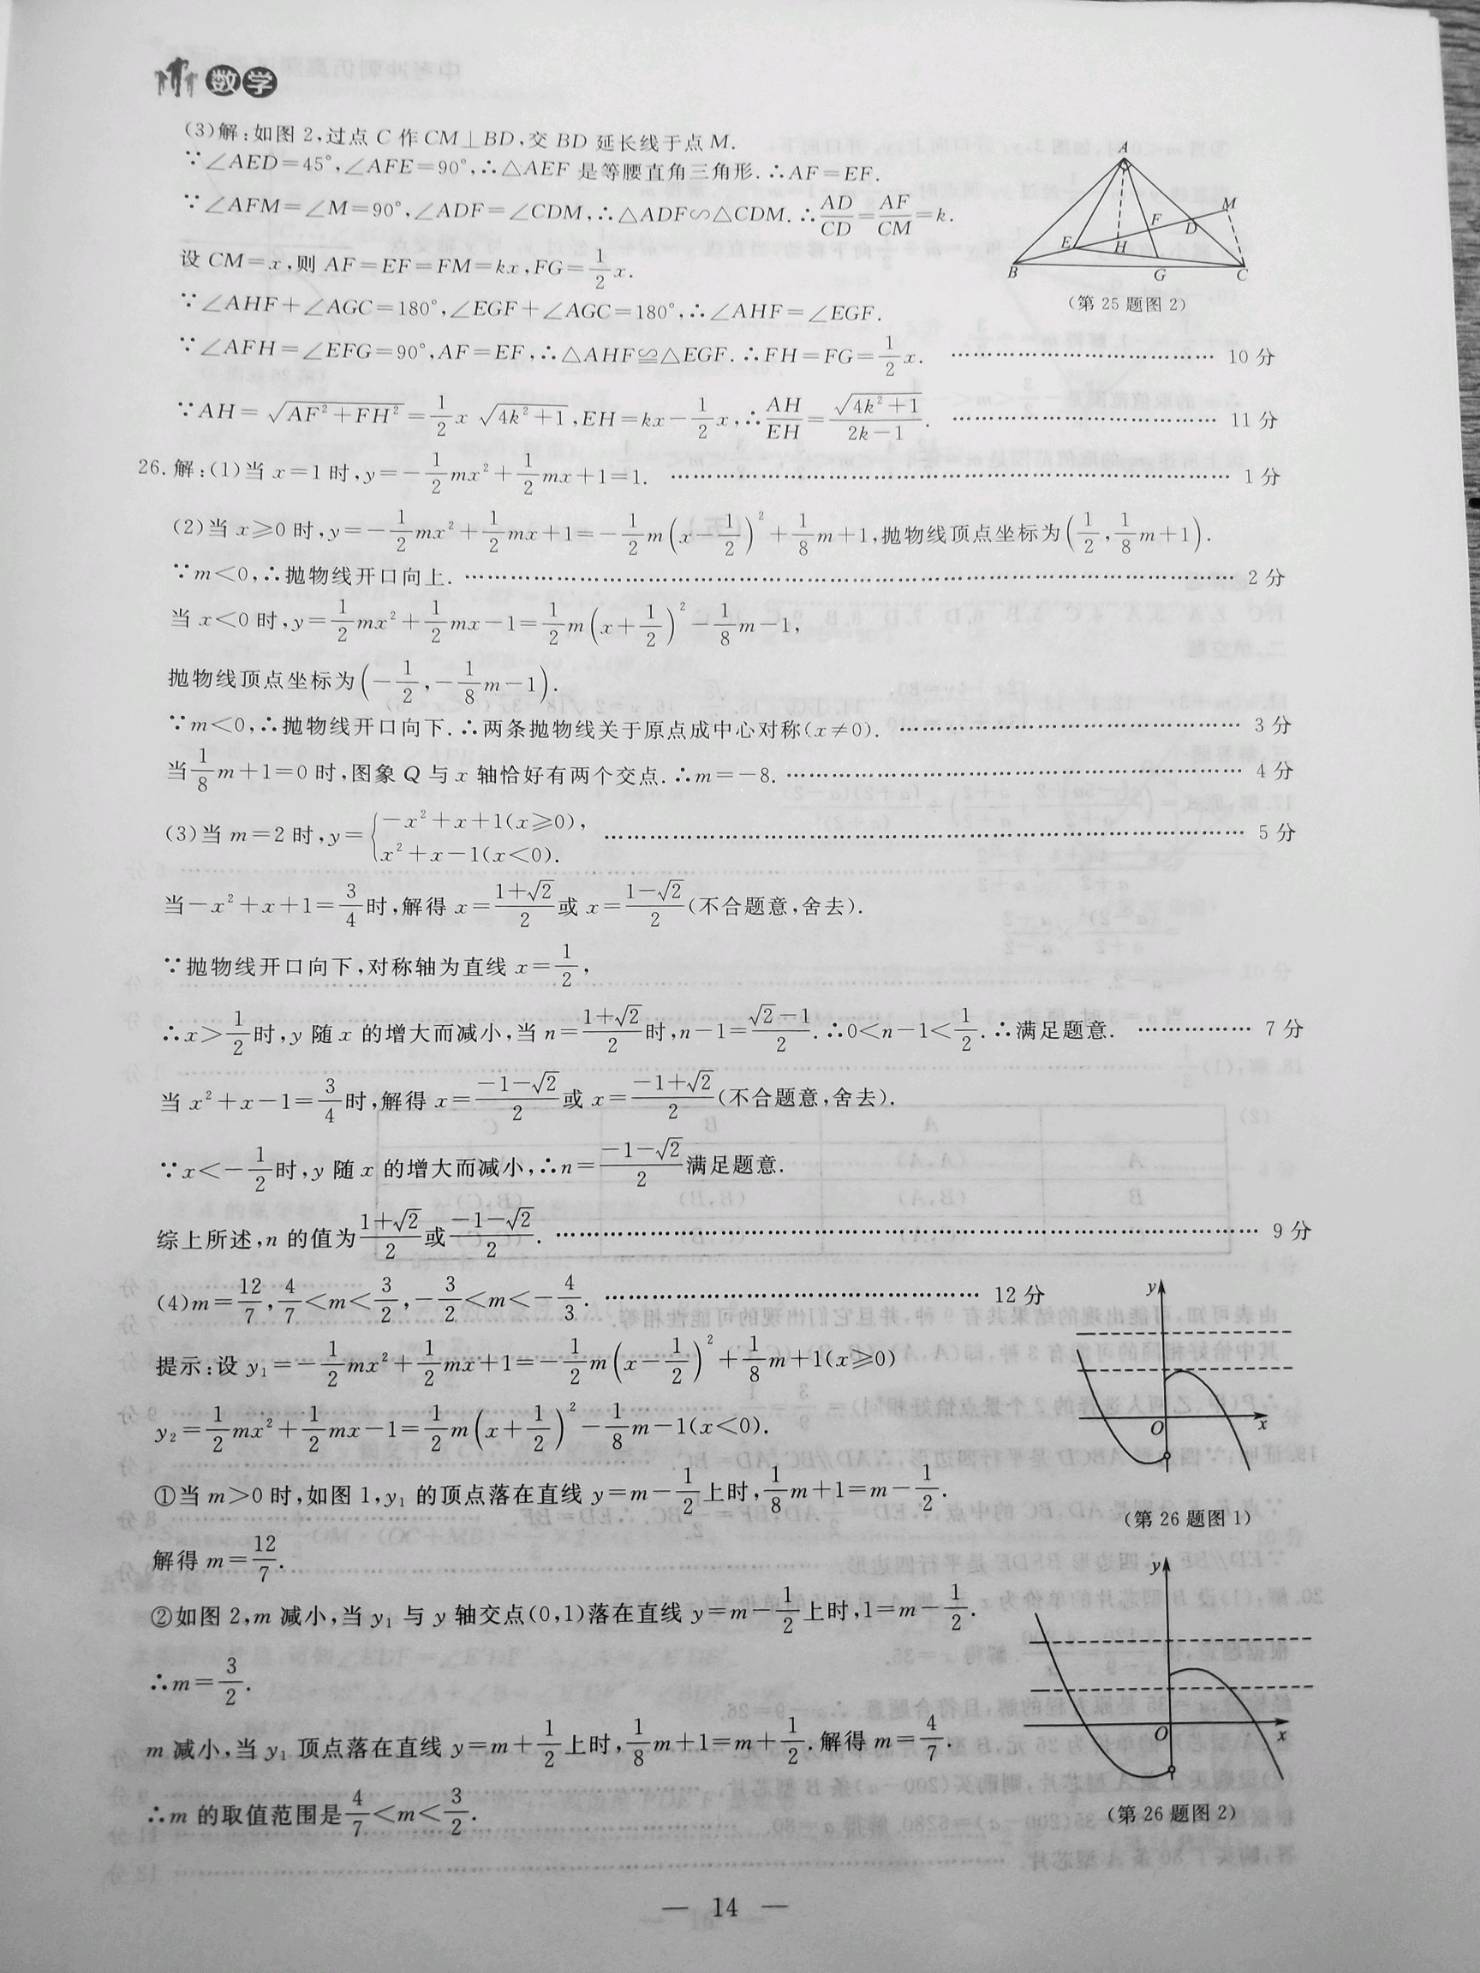 数学
(3)解:如图 2,过点 C 作 CM⊥BD,交 BD 延长线于点 M.
∵∠AED=45°,∠AFE=90°,∴△AEF 是等腰直角三角形.∴AF=EF.
∵∠AFM=∠M=90°,∠ADF=∠CDM,∴△ADF∽△CDM.∴AD/CD=AF/CM=k.
设 CM=x,则 AF=EF=FM=kx,FG=1/2x.
∵∠AHF+∠AGC=180°,∠EGF+∠AGC=180°,∴∠AHF=∠EGF.
∵∠AFH=∠EFG=90°,AF=EF,∴△AHF≌△EGF.∴FH=FG=1/2x. …… 10 分
∵AH=√(AF²+FH²)=1/2x√(4k²+1),EH=kx-1/2x,∴AH/EH=√(4k²+1)/(2k-1). …… 11 分
A
M
F
D
E
H
B
G
C
(第 25 题图 2)
26.解:(1)当 x=1 时,y=-1/2mx²+1/2mx+1=1. …… 1 分
(2)当 x≥0 时,y=-1/2mx²+1/2mx+1=-1/2m(x-1/2)²+1/8m+1,抛物线顶点坐标为(1/2,1/8m+1).
∵m<0,∴抛物线开口向上. …… 2 分
当 x<0 时,y=1/2mx²+1/2mx-1=1/2m(x+1/2)²-1/8m-1,
抛物线顶点坐标为(-1/2,-1/8m-1).
∵m<0,∴抛物线开口向下.∴两条抛物线关于原点成中心对称(x≠0). …… 3 分
当1/8m+1=0 时,图象 Q 与 x 轴恰好有两个交点.∴m=-8. …… 4 分
(3)当 m=2 时,y={-x²+x+1(x≥0), …… 5 分
x²+x-1(x<0).
当-x²+x+1=3/4时,解得 x=(1+√2)/2或 x=(1-√2)/2(不合题意,舍去).
∵抛物线开口向下,对称轴为直线 x=1/2,
∴x>1/2时,y 随 x 的增大而减小,当 n=(1+√2)/2时,n-1=(√2-1)/2.∴0<n-1<1/2.∴满足题意. …… 7 分
当 x²+x-1=3/4时,解得 x=(-1-√2)/2或 x=(-1+√2)/2(不合题意,舍去).
∵x<-1/2时,y 随 x 的增大而减小,∴n=(-1-√2)/2满足题意.
综上所述,n 的值为(1+√2)/2或(-1-√2)/2. …… 9 分
(4)m=12/7,4/7<m<3/2,-3/2<m<-4/3. …… 12 分
提示:设 y₁=-1/2mx²+1/2mx+1=-1/2m(x-1/2)²+1/8m+1(x≥0)
y₂=1/2mx²+1/2mx-1=1/2m(x+1/2)²-1/8m-1(x<0).
①当 m>0 时,如图 1,y₁ 的顶点落在直线 y=m-1/2上时,1/8m+1=m-1/2.
解得 m=12/7.
y
O
x
(第 26 题图 1)
②如图 2,m 减小,当 y₁ 与 y 轴交点(0,1)落在直线 y=m-1/2上时,1=m-1/2.
∴m=3/2.
m 减小,当 y₁ 顶点落在直线 y=m+1/2上时,1/8m+1=m+1/2.解得 m=4/7.
∴m 的取值范围是4/7<m<3/2.
y
O
x
(第 26 题图 2)
— 14 —